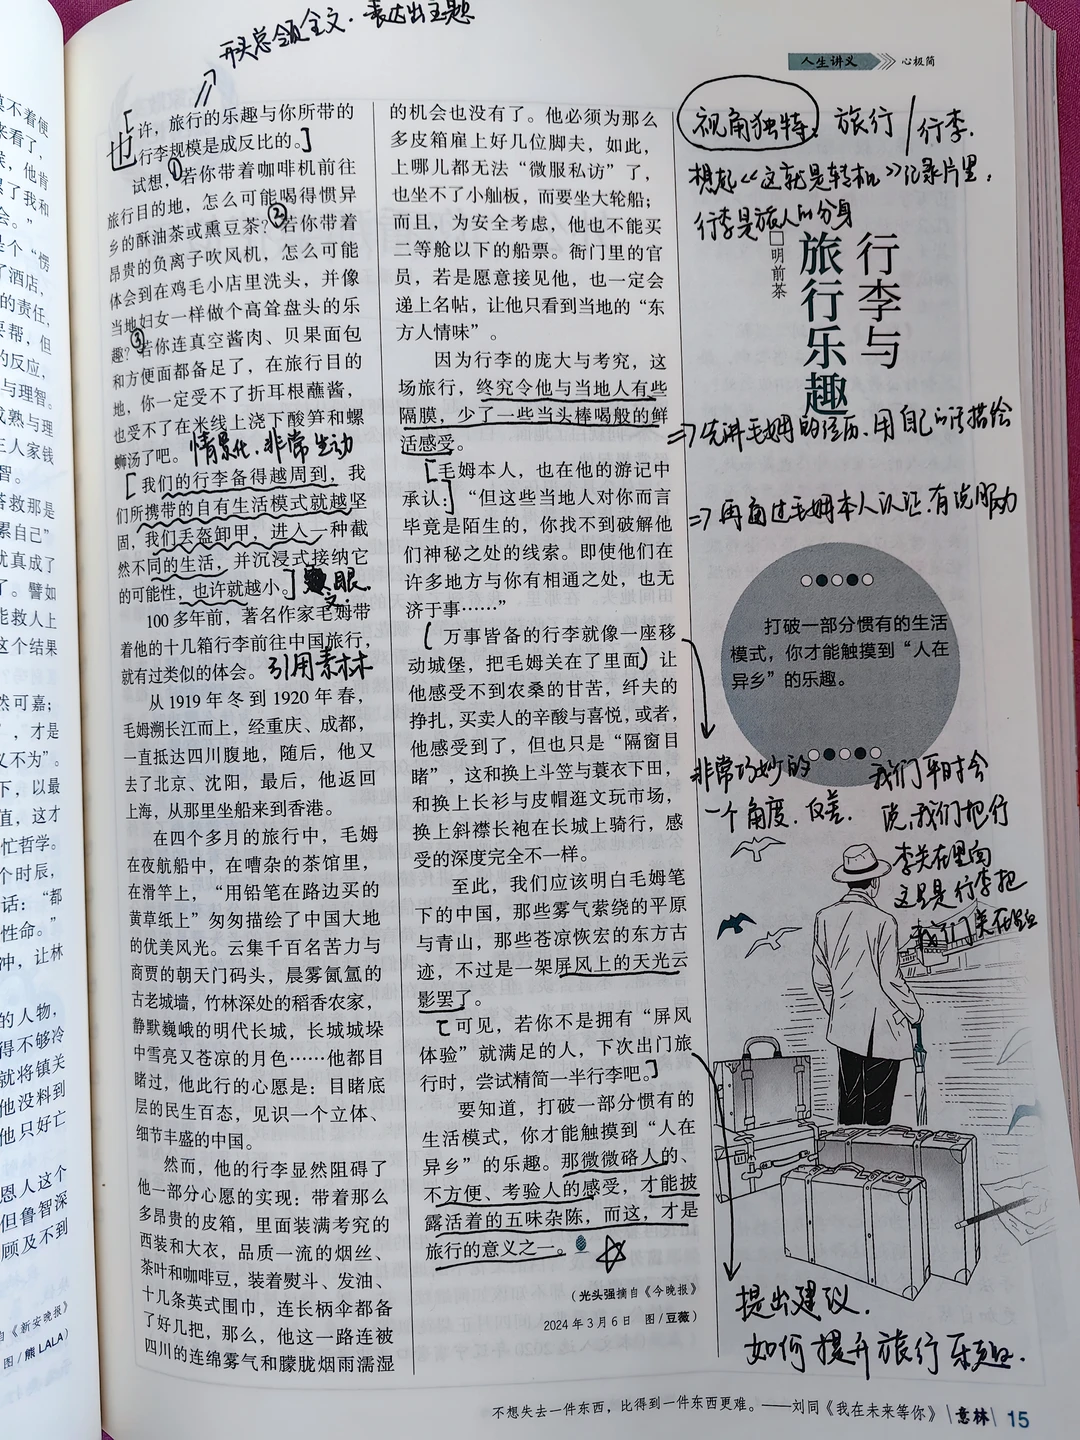 开头总领全文。表达出主题
人生讲义
心极简
也许，旅行的乐趣与你所带的
行李规模是成反比的。]
试想，①若你带着咖啡机前往
旅行目的地，怎么可能喝得惯异
乡的酥油茶或熏豆茶？②若你带着
昂贵的负离子吹风机，怎么可能
体会到在鸡毛小店里洗头，并像
当地妇女一样做个高耸盘头的乐
趣？③若你连真空酱肉、贝果面包
和方便面都备足了，在旅行目的
地，你一定受不了折耳根蘸酱，
也受不了在米线上浇下酸笋和螺
蛳汤了吧。
情景化，非常生动
[我们的行李备得越周到，我
们所携带的自有生活模式就越坚
固，我们丢盔卸甲，进入一种截
然不同的生活，并沉浸式接纳它
的可能性，也许就越小。]
文眼
100多年前，著名作家毛姆带
着他的十几箱行李前往中国旅行，
就有过类似的体会。
引用素材
从1919年冬到1920年春，
毛姆溯长江而上，经重庆、成都，
一直抵达四川腹地，随后，他又
去了北京、沈阳，最后，他返回
上海，从那里坐船来到香港。
在四个多月的旅行中，毛姆
在夜航船中，在嘈杂的茶馆里，
在滑竿上，“用铅笔在路边买的
黄草纸上”匆匆描绘了中国大地
的优美风光。云集千百名苦力与
商贾的朝天门码头，晨雾氤氲的
古老城墙，竹林深处的稻香农家，
静默巍峨的明代长城，长城城垛
中雪亮又苍凉的月色……他都目
睹过，他此行的心愿是：目睹底
层的民生百态，见识一个立体、
细节丰盛的中国。
然而，他的行李显然阻碍了
他一部分心愿的实现：带着那么
多昂贵的皮箱，里面装满考究的
西装和大衣，品质一流的烟丝、
茶叶和咖啡豆，装着熨斗、发油、
十几条英式围巾，连长柄伞都备
了好几把，那么，他这一路连被
四川的连绵雾气和朦胧烟雨濡湿
的机会也没有了。他必须为那么
多皮箱雇上好几位脚夫，如此，
上哪儿都无法“微服私访”了，
也坐不了小舢板，而要坐大轮船；
而且，为安全考虑，他也不能买
二等舱以下的船票。衙门里的官
员，若是愿意接见他，也一定会
递上名帖，让他只看到当地的“东
方人情味”。
因为行李的庞大与考究，这
场旅行，终究令他与当地人有些
隔膜，少了一些当头棒喝般的鲜
活感受。
[毛姆本人，也在他的游记中
承认：]“但这些当地人对你而言
毕竟是陌生的，你找不到破解他
们神秘之处的线索。即使他们在
许多地方与你有相通之处，也无
济于事……”
(万事皆备的行李就像一座移
动城堡，把毛姆关在了里面)让
他感受不到农桑的甘苦，纤夫的
挣扎，买卖人的辛酸与喜悦，或者，
他感受到了，但也只是“隔窗目
睹”，这和换上斗笠与蓑衣下田，
和换上长衫与皮帽逛文玩市场，
换上斜襟长袍在长城上骑行，感
受的深度完全不一样。
至此，我们应该明白毛姆笔
下的中国，那些雾气萦绕的平原
与青山，那些苍凉恢宏的东方古
迹，不过是一架屏风上的天光云
影罢了。
[可见，若你不是拥有“屏风
体验”就满足的人，下次出门旅
行时，尝试精简一半行李吧。]
要知道，打破一部分惯有的
生活模式，你才能触摸到“人在
异乡”的乐趣。那微微硌人的、
不方便、考验人的感受，才能披
露活着的五味杂陈，而这，才是
旅行的意义之一。
（光头强摘自《今晚报》
2024年3月6日 图/豆薇）
视角独特，旅行/行李.
想起《这就是转机》记录片里，
行李是旅人的分身
行李与
旅行乐趣
□明前茶
⇒先讲毛姆的经历，用自己的话描绘
⇒再通过毛姆本人认证，有说服力
打破一部分惯有的生活
模式，你才能触摸到“人在
异乡”的乐趣。
非常巧妙的
一个角度，反差.
我们平时会
说，我们把行
李关在里面
这里是行李把
我们关在里
提出建议.
如何提升旅行乐趣.
不想失去一件东西，比得到一件东西更难。——刘同《我在未来等你》
意林 15
莫不着便
来看了，
他肯
累了我和
会。”
是个“愣
了酒店，
的责任，
要帮，但
的反应，
与理智。
成熟与理
主人家钱
智。
答救那是
累自己”
就真成了
了。譬如
能救人上
这个结果
然可嘉；
”，才是
义不为”。
下，以最
值，这才
忙哲学。
个时辰，
话：“都
性命。”
冲，让林
的人物，
得不够冷
就将镇关
他没料到
他只好亡
恩人这个
但鲁智深
顾及不到
自《新安晚报》
图/熊LALA）